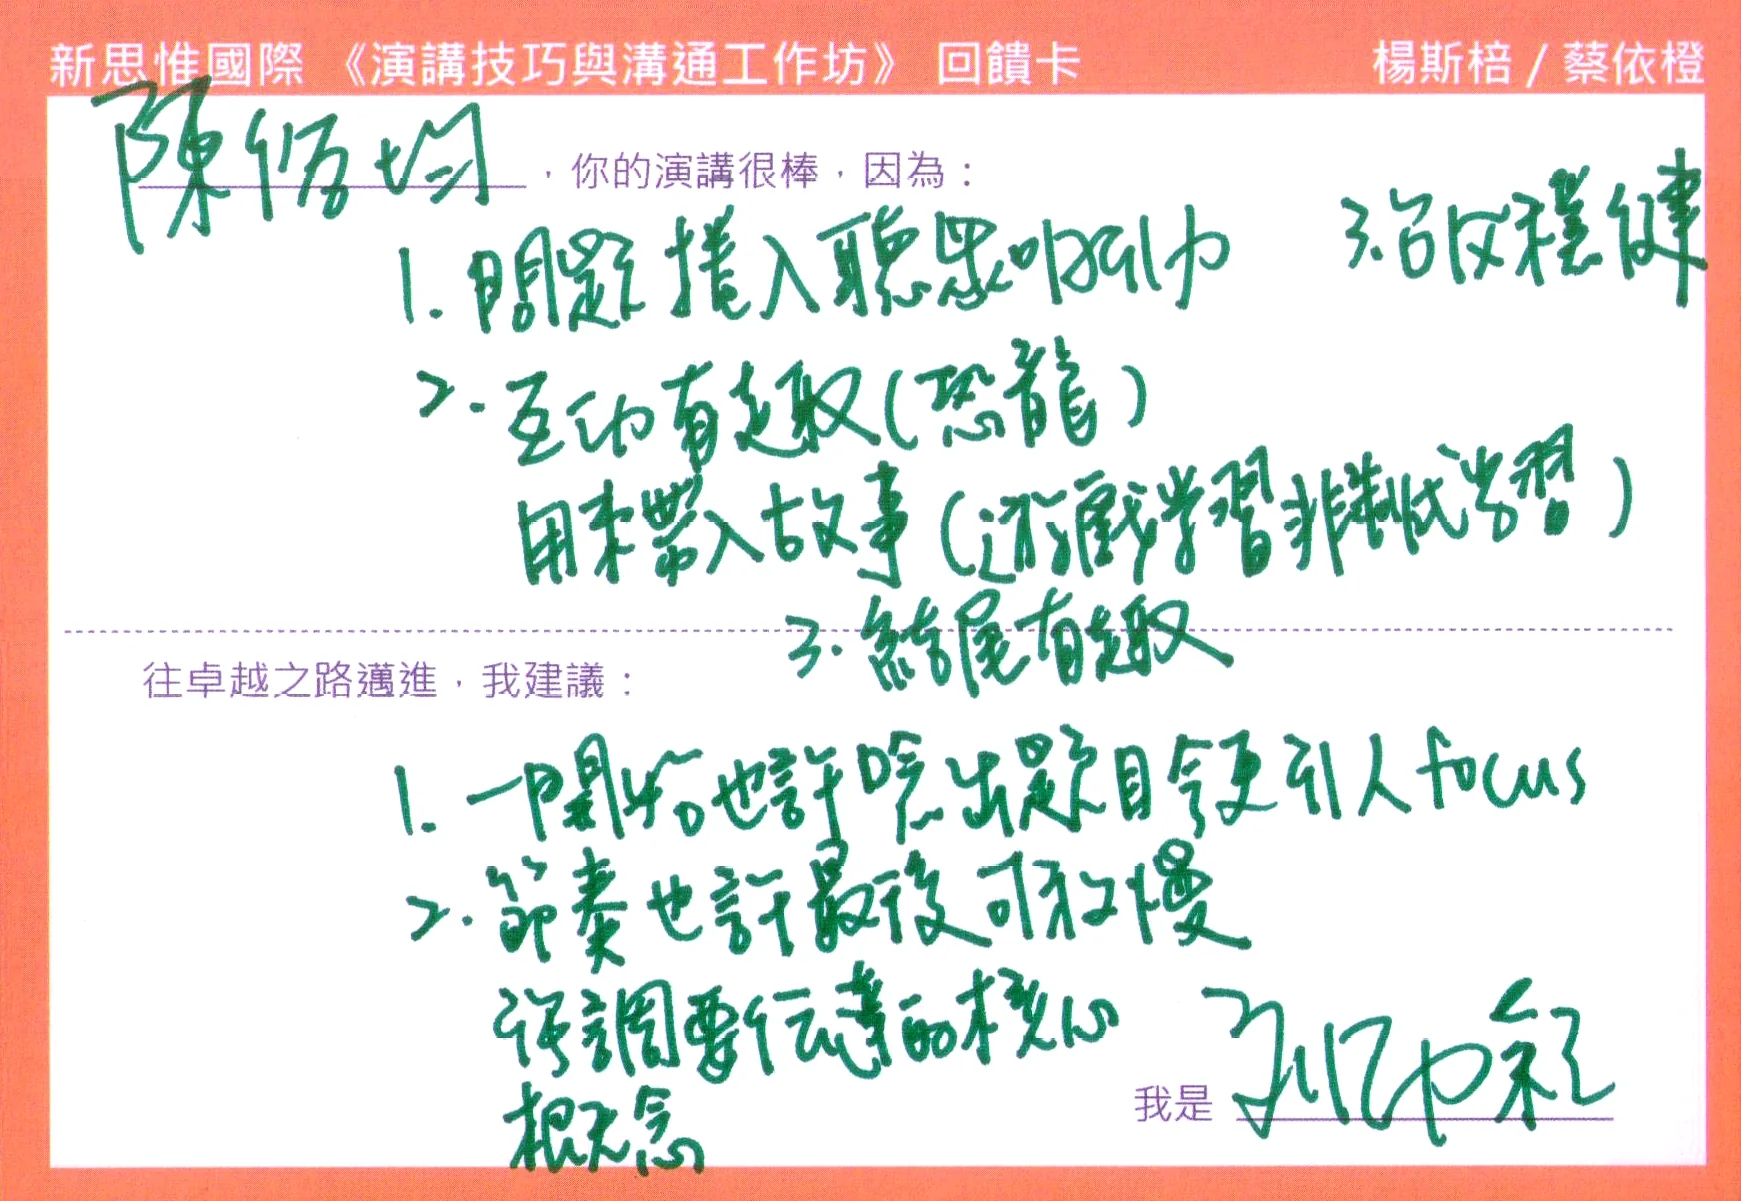 新思惟國際 《演講技巧與溝通工作坊》 回饋卡 楊斯棓 / 蔡依橙
陳 均 ，你的演講很棒，因為：
1. 問題捲入聽眾 3. 台風穩健
2. 互动有趣(恐龍)
用來帶入故事(遊戲學習非制式学習)
3. 結尾有趣
往卓越之路邁進，我建議：
1. 一開始也許唸出題目会更引人focus
2. 節奏也許最後可放慢
強調要伝達的核心
概念
我是